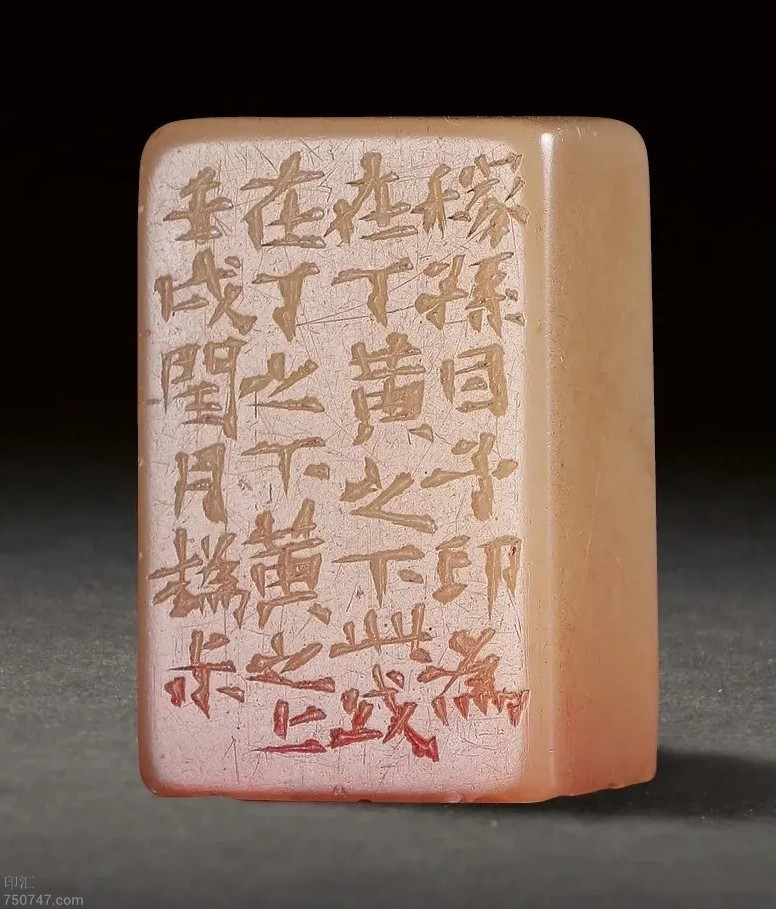 稼孫目予印為
在丁黃之下此或
在丁之下黃之上
壬戌閏月撝尗
印汇
750747.com